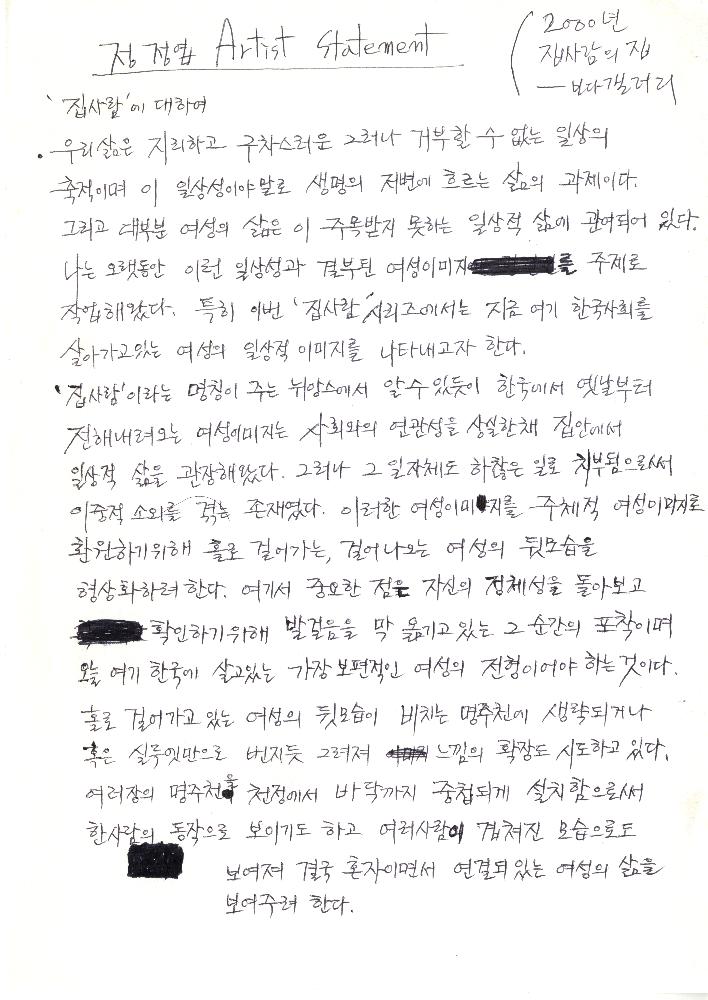 정정엽 Artist Statement
2000년
집사람의 집
— 보다갤러리
'집사람'에 대하여
· 우리삶은 지리하고 구차스러운 그러나 거부할 수 없는 일상의
축적이며 이 일상성이야말로 생명의 저변에 흐르는 삶의 과제이다.
그리고 대부분 여성의 삶은 이 주목받지 못하는 일상적 삶에 관여되어 있다.
나는 오랫동안 이런 일상성과 결부된 여성이미지를 주제로
작업해왔다. 특히 이번 '집사람' 시리즈에서는 지금 여기 한국사회를
살아가고있는 여성의 일상적 이미지를 나타내고자 한다.
'집사람'이라는 명칭이 주는 뉘앙스에서 알수있듯이 한국에서 옛날부터
전해내려오는 여성이미지는 사회와의 연관성을 상실한채 집안에서
일상적 삶을 관장해왔다. 그러나 그 일자체도 하찮은 일로 치부됨으로써
이중적 소외를 겪는 존재였다. 이러한 여성이미지를 주체적 여성이미지로
환원하기위해 홀로 걸어가는, 걸어나오는 여성의 뒷모습을
형상화하려한다. 여기서 중요한 점은 자신의 정체성을 돌아보고
확인하기위해 발걸음을 막 옮기고있는 그 순간의 포착이며
오늘 여기 한국에 살고있는 가장 보편적인 여성의 전형이어야 하는것이다.
홀로 걸어가고 있는 여성의 뒷모습이 비치는 명주천에 생략되거나
혹은 실루엣만으로 번지듯 그려져 느낌의 확장도 시도하고 있다.
여러장의 명주천을 천정에서 바닥까지 중첩되게 설치함으로써
한사람의 동작으로 보이기도 하고 여러사람이 겹쳐진 모습으로도
보여져 결국 혼자이면서 연결되있는 여성의 삶을
보여주려 한다.